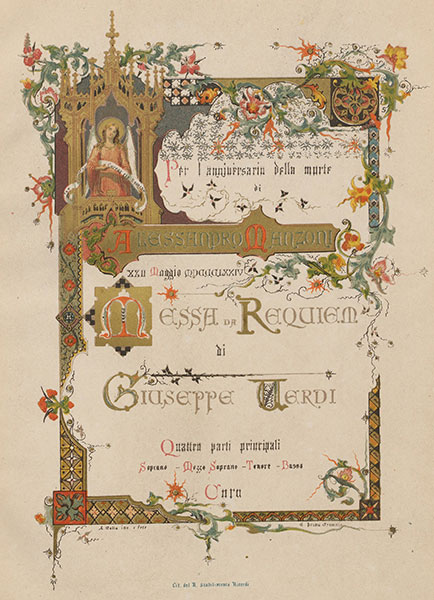 Per l'anniversario della morte
di
Alessandro Manzoni
XXII Maggio MDCCCLXXIV
Messa da Requiem
di
Giuseppe Verdi
Quattro parti principali
Soprano - Mezzo Soprano - Tenore - Basso
Coro
Ricordi